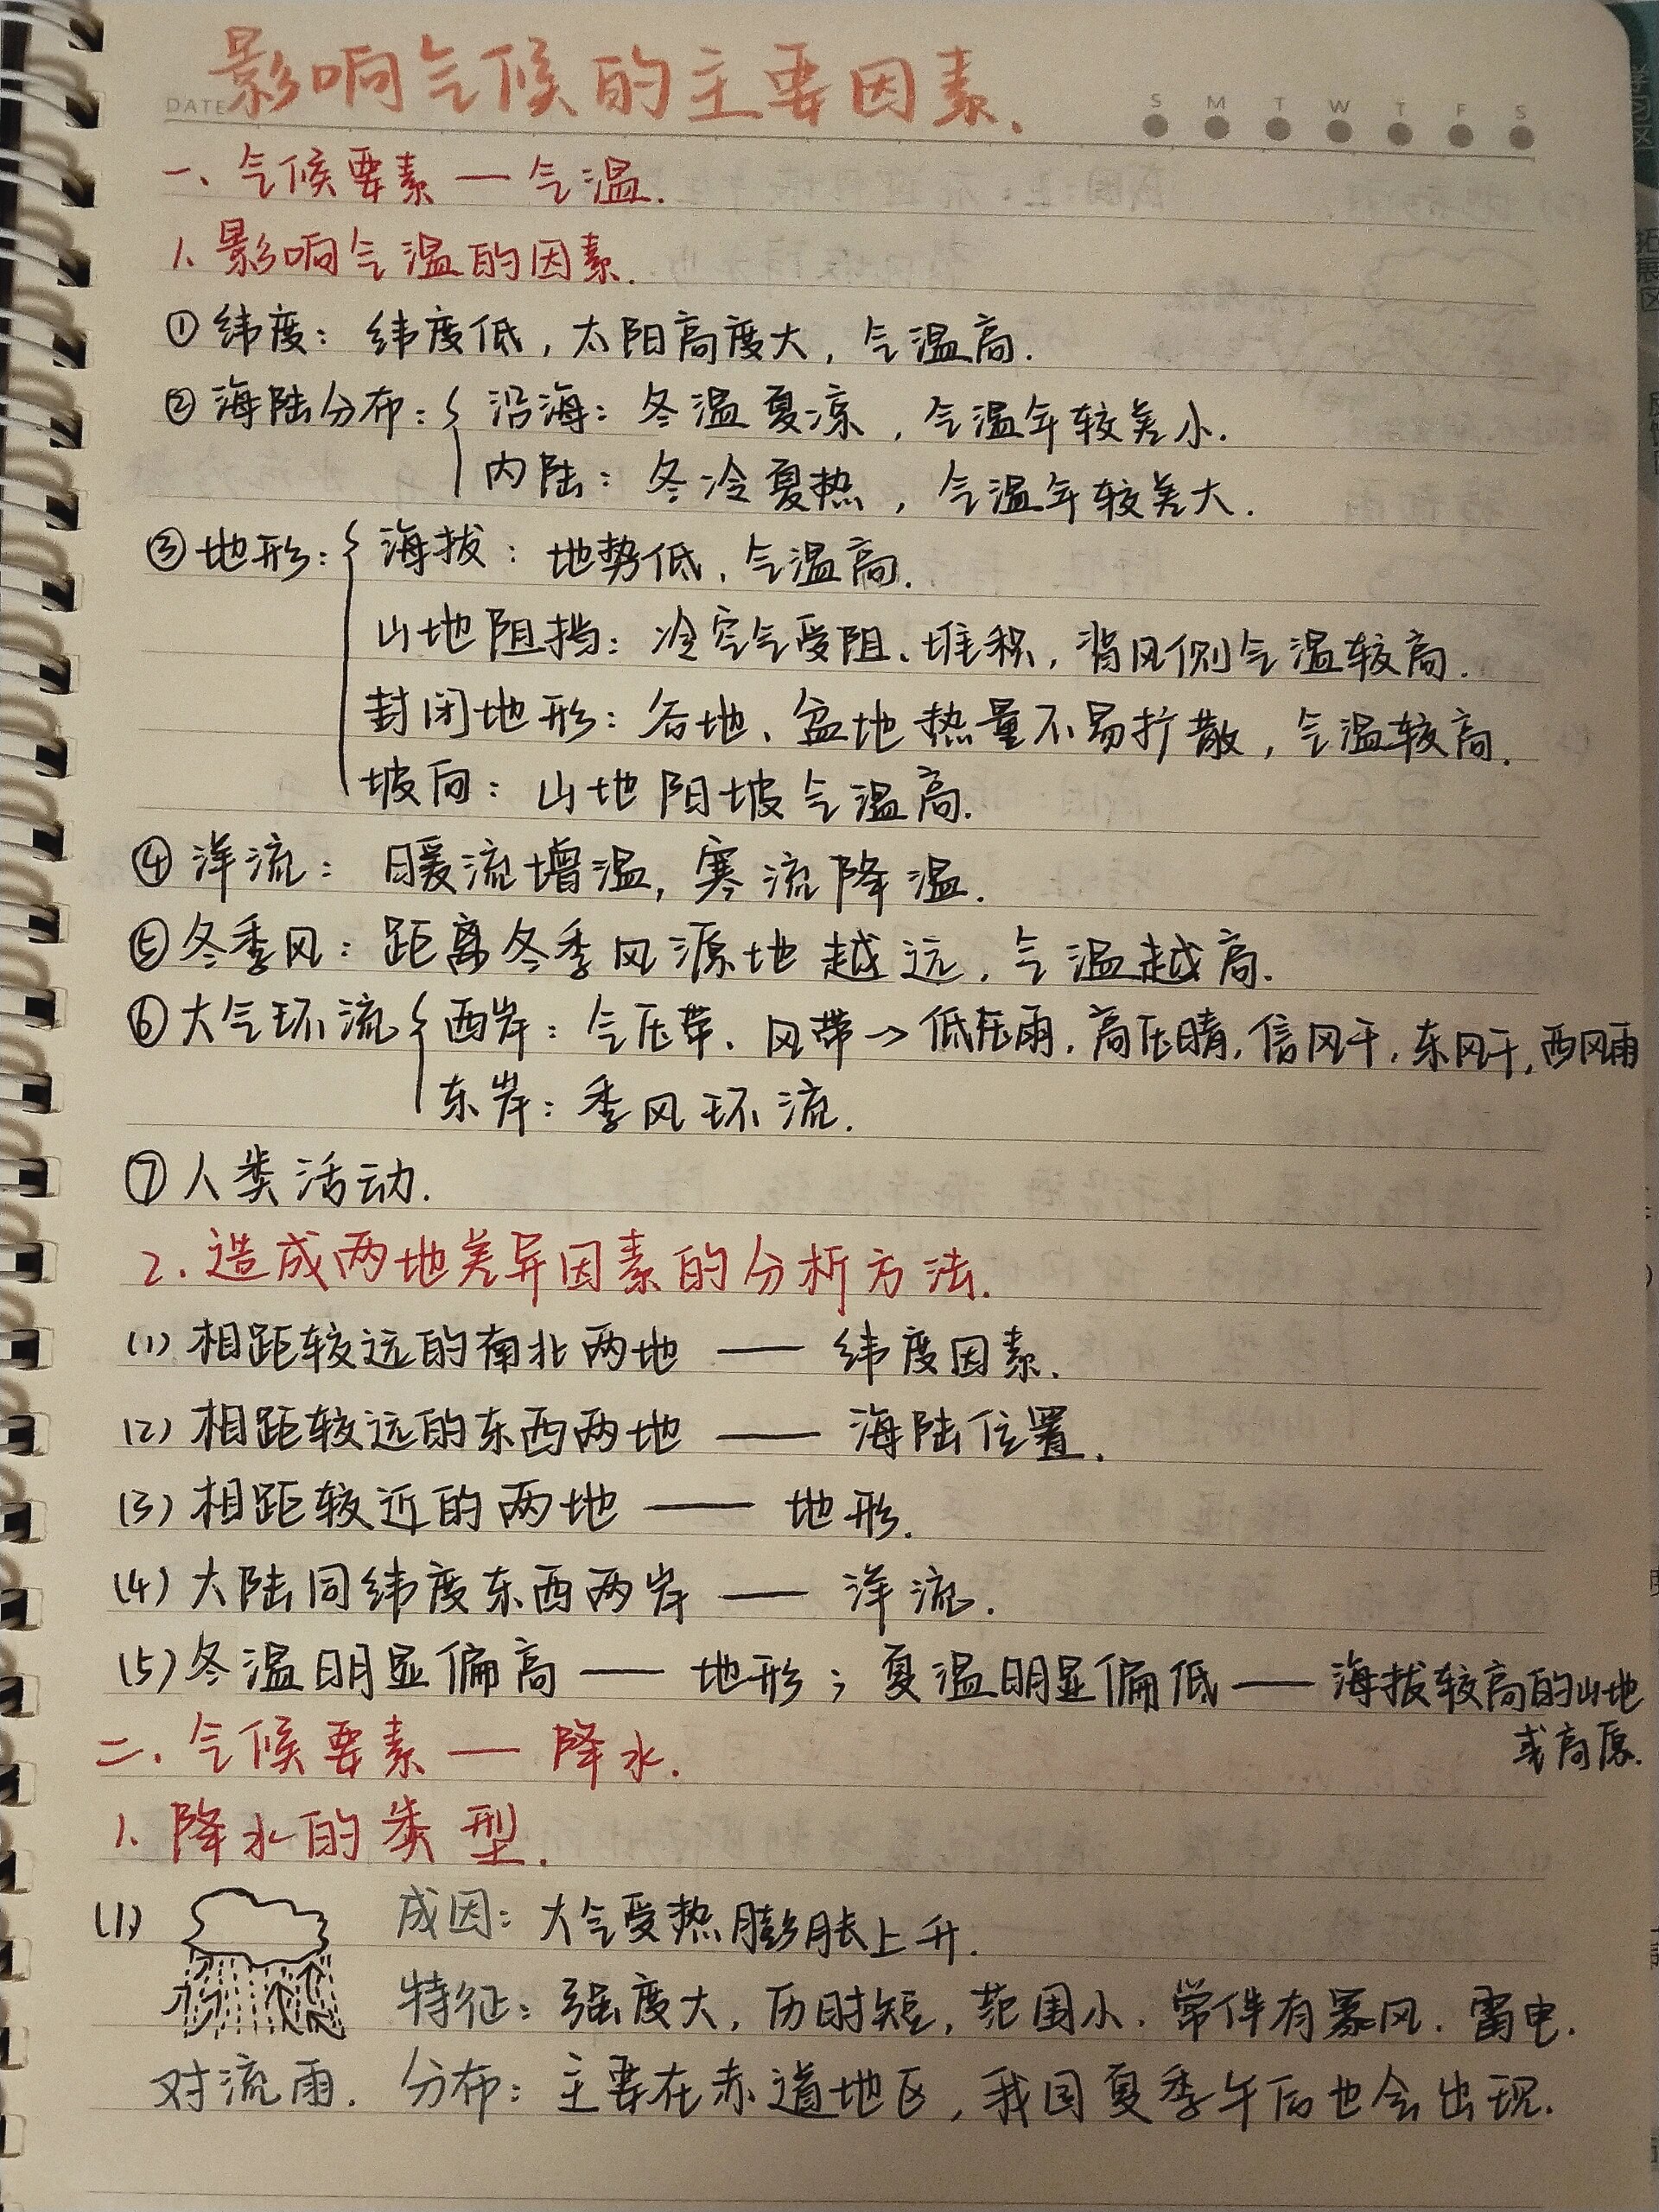 影响气候的主要因素.
DATE
S M T W T F S
一、气候要素 — 气温.
1. 影响气温的因素.
① 纬度: 纬度低, 太阳高度大, 气温高.
② 海陆分布: { 沿海: 冬温夏凉, 气温年较差小.
内陆: 冬冷夏热, 气温年较差大.
③ 地形: { 海拔: 地势低, 气温高.
山地阻挡: 冷空气受阻、堆积, 背风侧气温较高.
封闭地形: 谷地、盆地热量不易扩散, 气温较高.
坡向: 山地阳坡气温高.
④ 洋流: 暖流增温, 寒流降温.
⑤ 冬季风: 距离冬季风源地越远, 气温越高.
⑥ 大气环流 { 西岸: 气压带、风带→低压雨, 高压晴, 信风干, 东风干, 西风雨
东岸: 季风环流.
⑦ 人类活动.
2. 造成两地差异因素的分析方法.
(1) 相距较远的南北两地 —— 纬度因素.
(2) 相距较远的东西两地 —— 海陆位置.
(3) 相距较近的两地 —— 地形.
(4) 大陆同纬度东西两岸 —— 洋流.
(5) 冬温明显偏高 —— 地形; 夏温明显偏低 —— 海拔较高的山地
或高原.
二、气候要素 — 降水.
1. 降水的类型.
(1) 成因: 大气受热膨胀上升.
特征: 强度大, 历时短, 范围小. 常伴有暴风. 雷电.
对流雨. 分布: 主要在赤道地区, 我国夏季午后也会出现.
学习区
拓展区